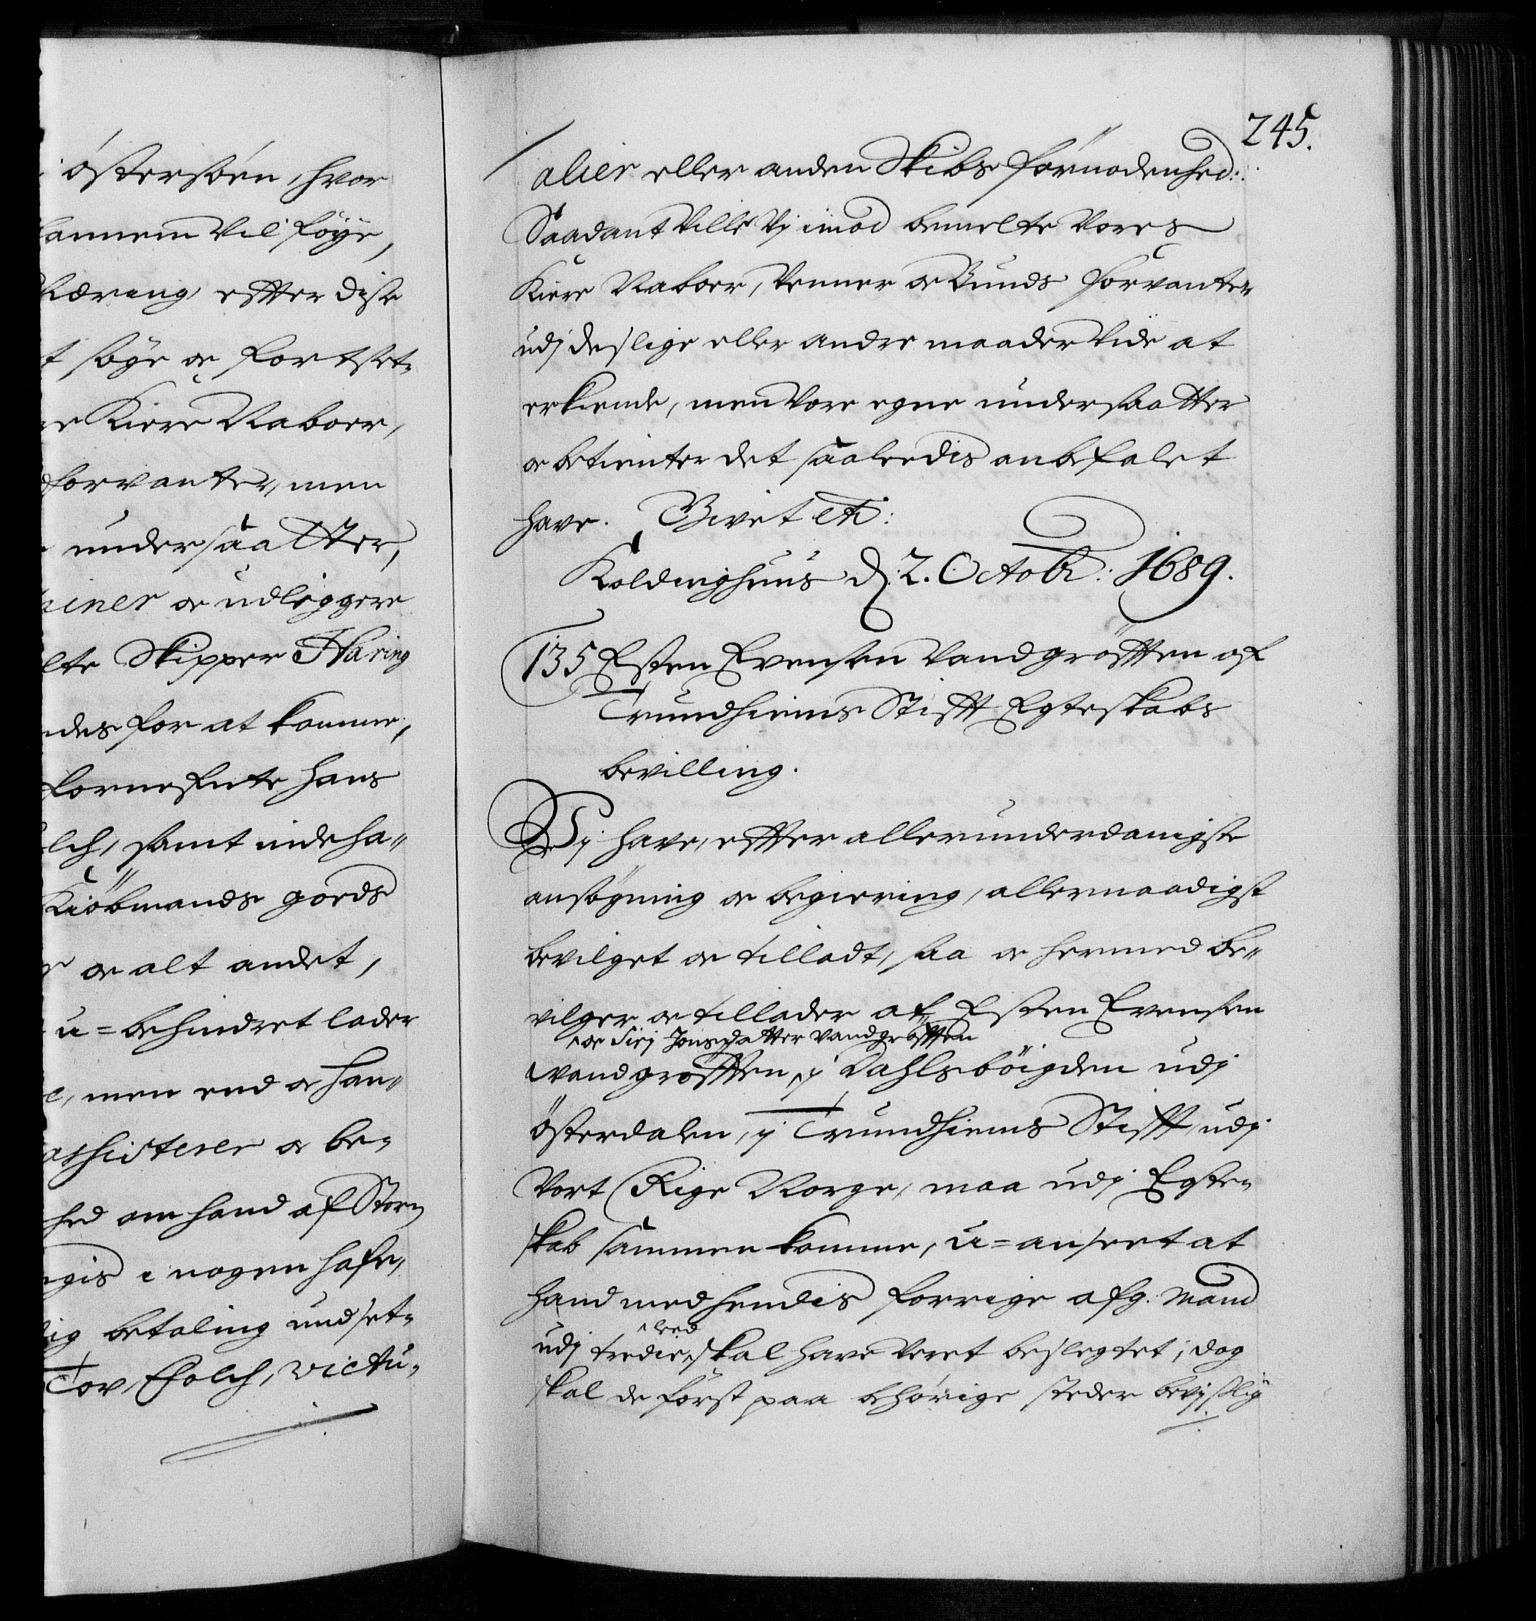 östersöen, hvor
hannem vil föye,
Næring efter disse
t söge oc fortset-
re Kiere Naboer,
forvanter, men
undersaatter,
iner oc udliggere
lte Skipper Haring
des for at komme,
fornefnte hans
lch, samt indeha-
Kiöbmands goeds
r oc alt andet,
u-behindret lader
e, men end oc han-
assisterer oc be-
hed om hand af Storm
gis i nogen hafn,
lig betaling undset-
Tov, Folch, victu-
245.
alier eller anden Skibs fornödenhed:
Saadant ville Vj imod bemelte Vores
Kiere Naboer, Venner oc Bunds forvanter
udj deslige eller andre maader vide at
erkiende, men Vore egne undersaatter
oc betienter det saaledis anbefalet
have. Givet etc:
Koldinghuus d: 2. Octobr: 1689.
135 Esten Evensen Vandgröfften af
Trundhiems Stifft Egteskabs
bevilling.
Vj have, effter allerunderdanigste
ansögning oc begiering, allernaadigst
bevilget oc tilladt, saa oc hermed be-
vilger oc tillader at Esten Evensen
oc Sirj Jonsdatter vandgröfften
vandgröfften, j Dahlsböigden udj
Österdalen, j Trundhiems Stifft, udj
Vort Rige Norge, maa udj Egte-
skab sammen komme, u-anseet at
hand med hendis forrige afg. Mand
leed
udj tredie skal have veret beslegtet; dog
skal de först paa behörige steder bevijslig